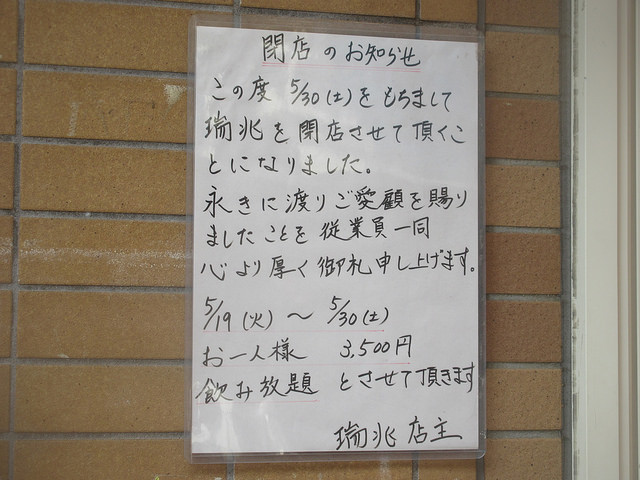 閉店のお知らせ
この度 5/30(土)をもちまして
瑞兆を閉店させて頂くこ
とになりました。
永きに渡りご愛顧を賜り
ましたことを従業員一同
心より厚く御札申し上げます。
5/19(火)～5/30(土)
お一人様 3,500円
飲み放題 とさせて頂きます
瑞兆 店主